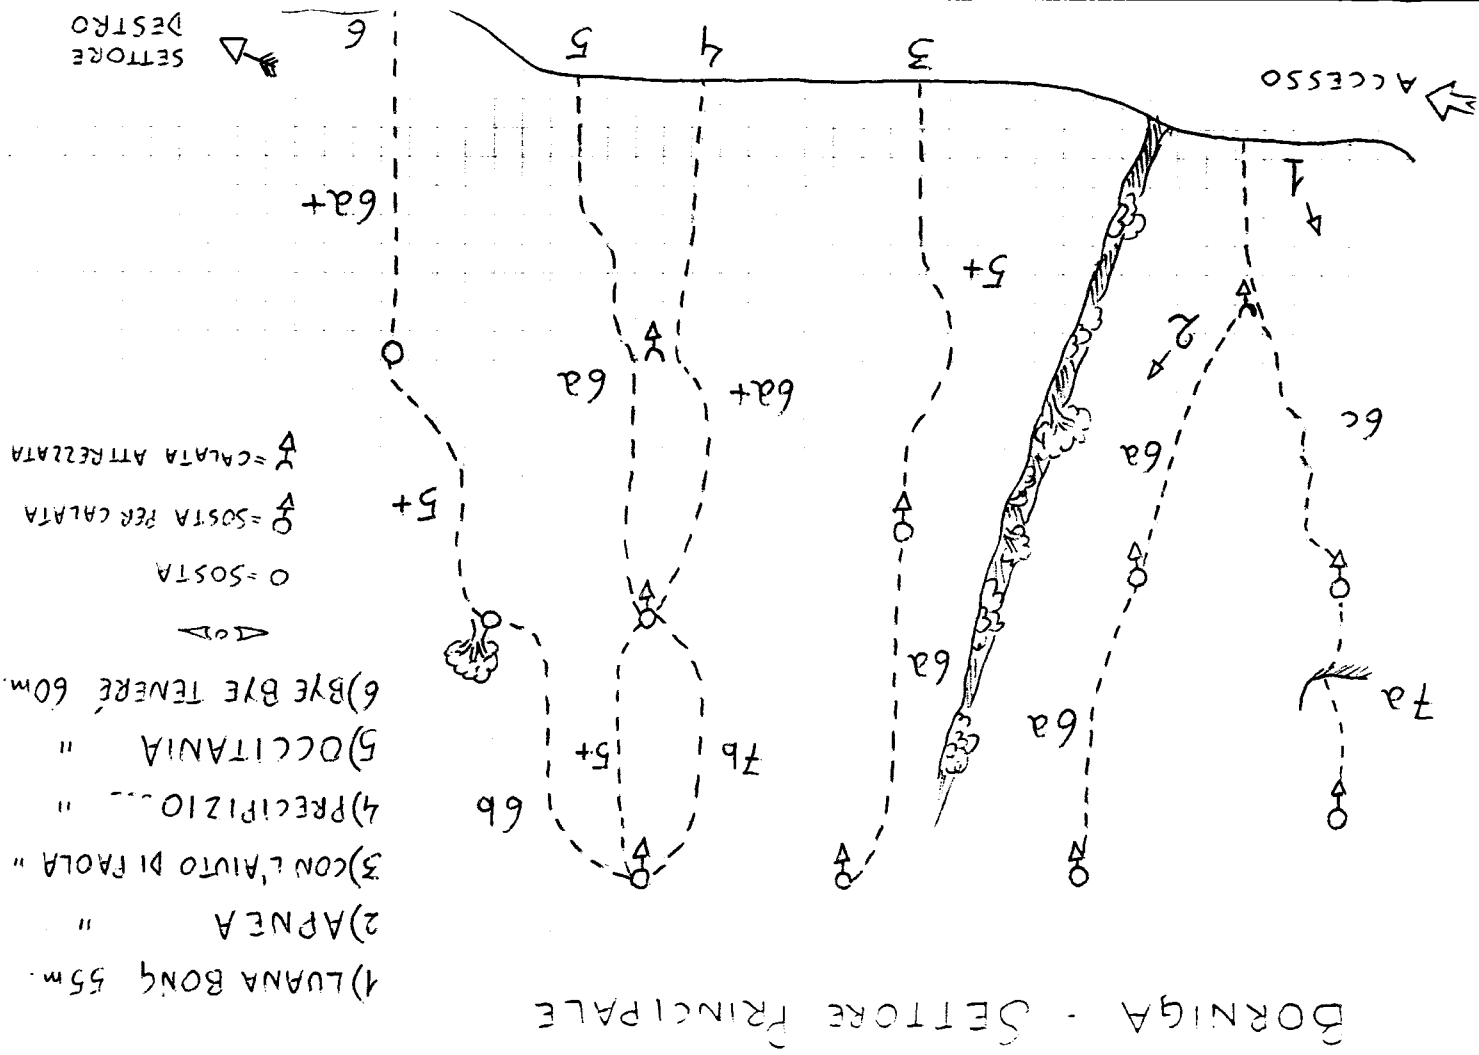 BORNIGA - SETTORE PRINCIPALE
1) LUANA BONG 55m.
2) APNEA "
3) CON L'AIUTO DI PAOLA "
4) PRECIPIZIO ... "
5) OCCITANIA "
6) BYE BYE TENERÉ 60m.
O = SOSTA
= SOSTA PER CALATA
= CALATA ATTREZZATA
7a
6c
6a
6a
6a
5+
7b
5+
6b
6a+
6a
5+
6a+
1
2
3
4
5
6
ACCESSO
SETTORE
DESTRO